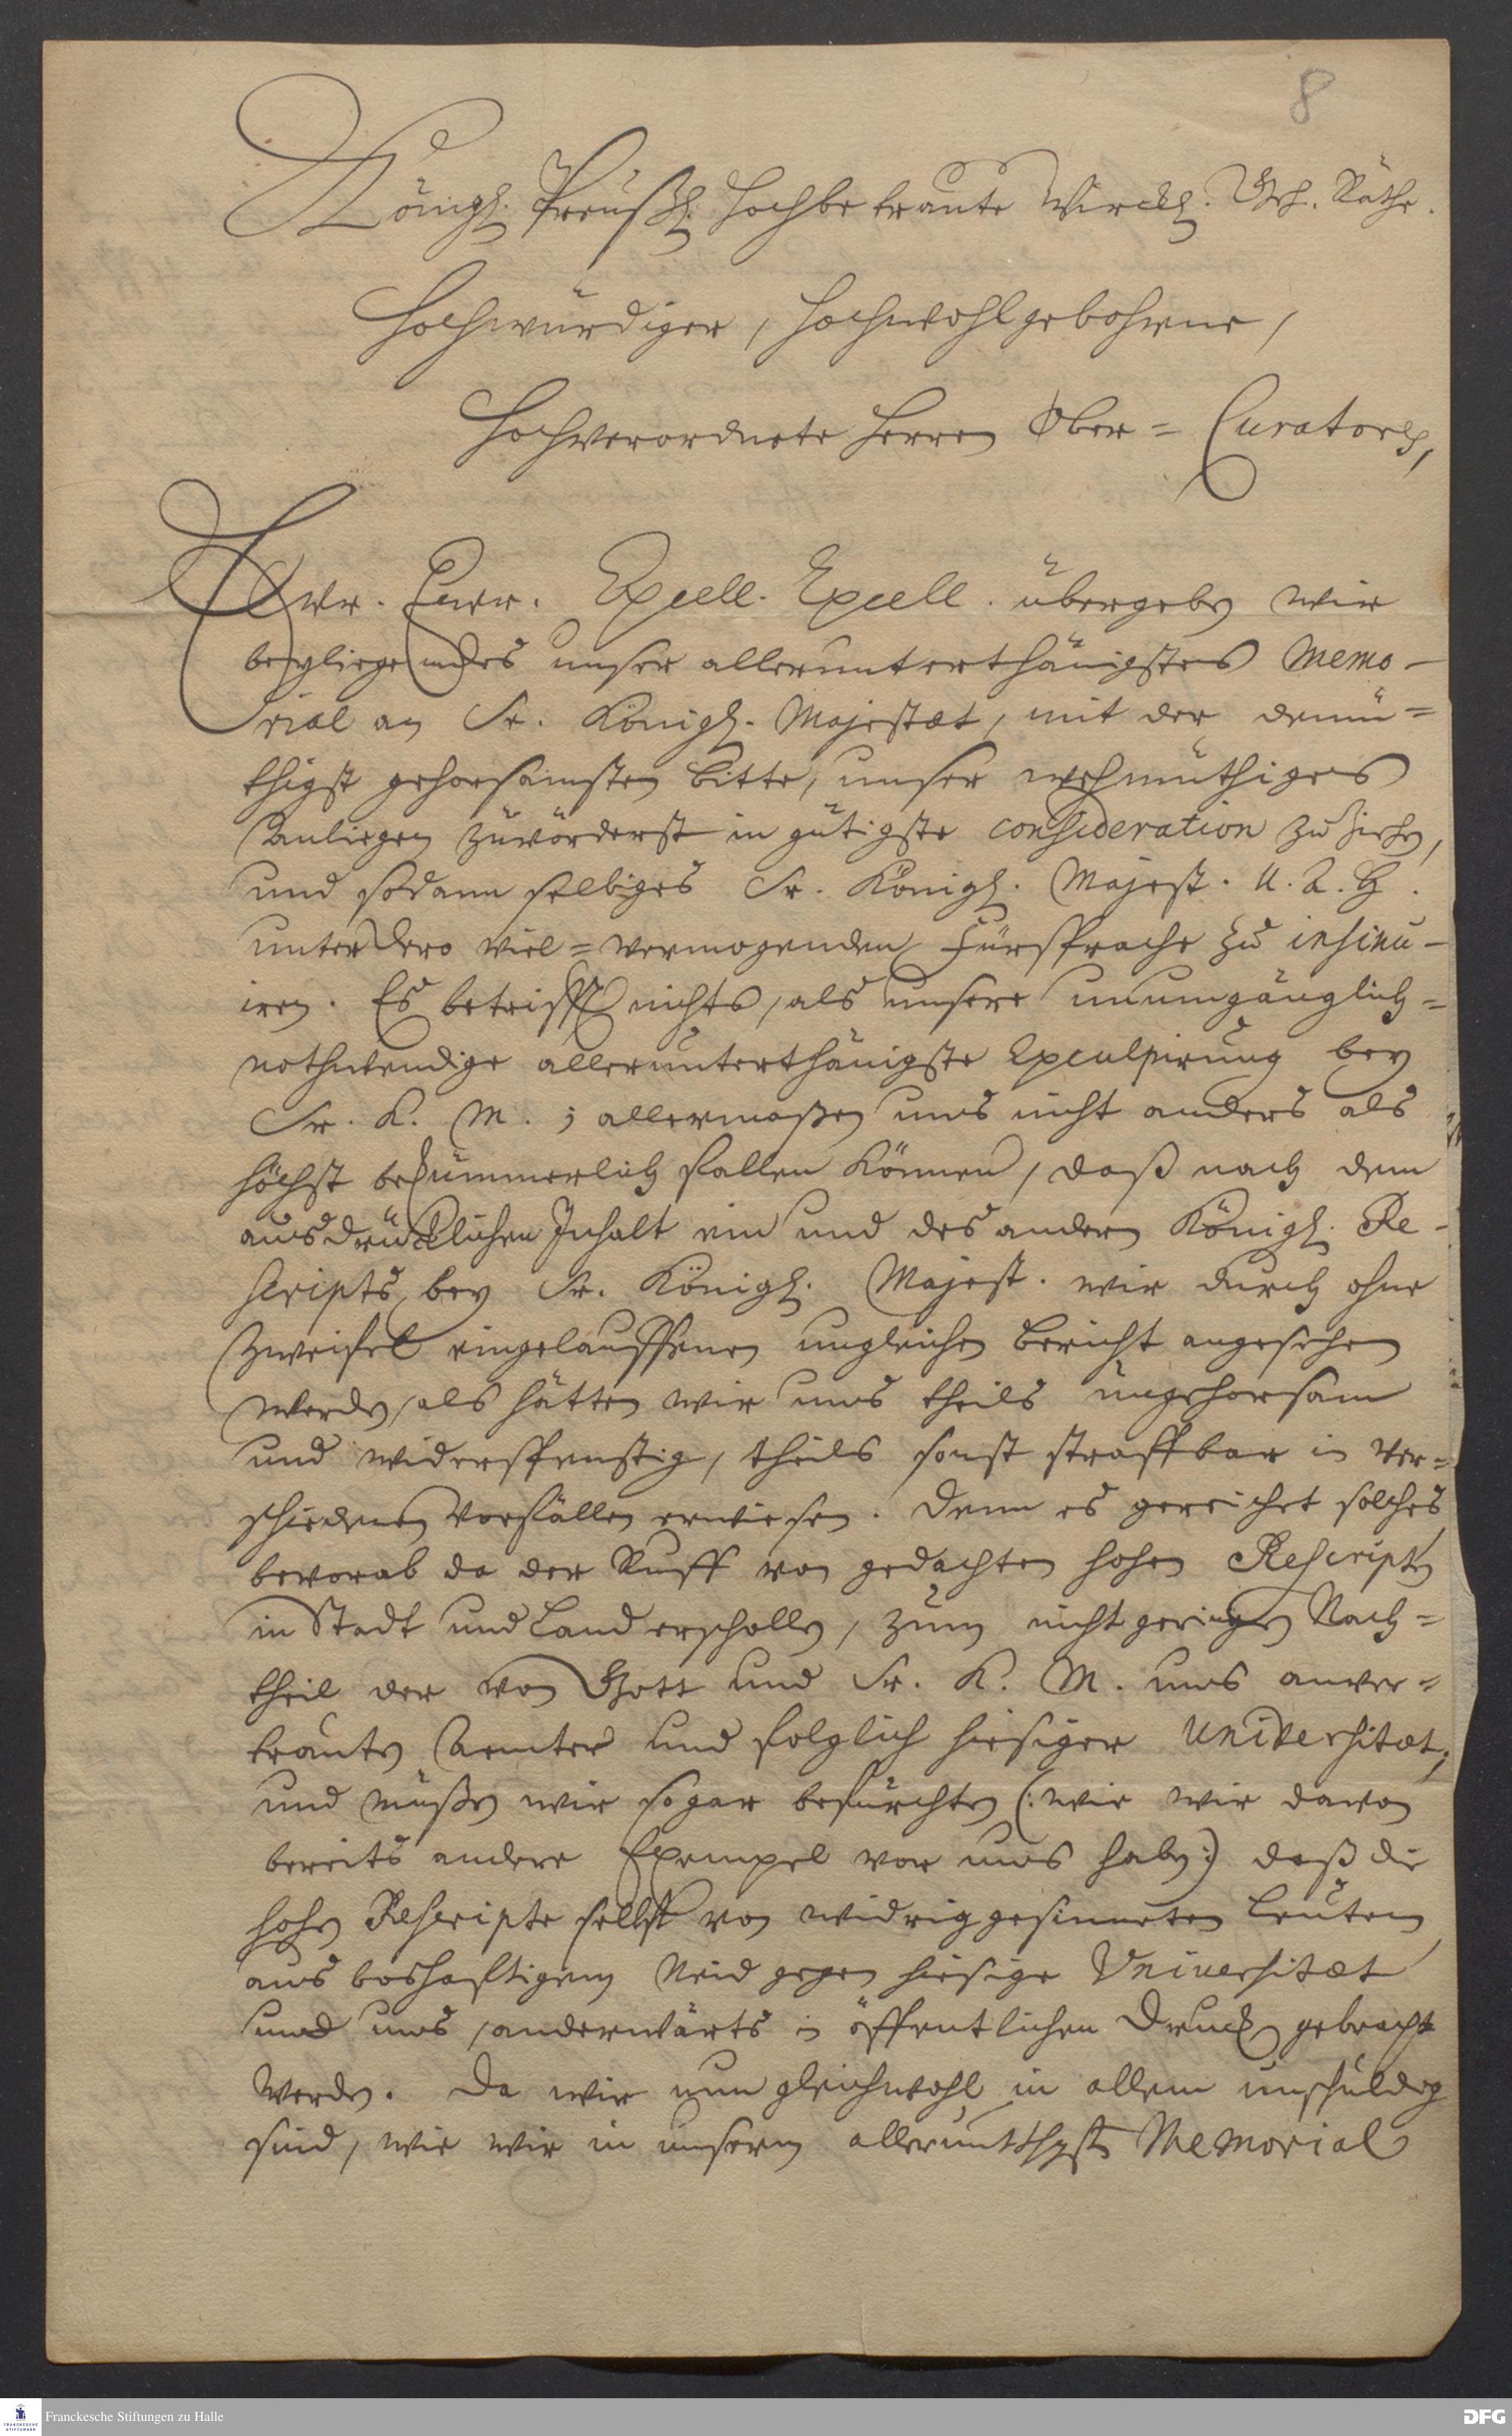 8
Königl. Preußl. Hochbetraute Wirckl. Geh. Räthe.
Hochwürdiger, Hochwohlgebohrne,
Hochverordnete Herren Ober-Curatores,
Ewr. Ewr. Excell. Excell. übergeben wir
beyliegendes unser allerunterthänigstes Memo-
rial an Se. Königl. Majestæt, mit der demü-
thigst gehorsamsten Bitte, unser wehmüthiges
Anliegen zuvörderst in gütigste consideration zu ziehen,
und sodann selbiges Sr. Königl. Majest. U. A. H.
unter Dero viel-vermogenden Fürsprache zu insinu-
iren. Es betrifft nichts, als unsere unumgänglich-
nothwendige allerunterthänigste Exculpirung bey
Sr. K. M.; allermaßen uns nicht anders als
höchst bekümmerlich fallen können, daß nach dem
ausdrücklichen Inhalt ein und des andern Königl. Re-
scripts, bey Sr. Königl. Majest. wir durch ohne
Zweifel eingelauffenen ungleichen Bericht angesehen
werden, als hätten wir uns theils ungehorsam
und widerspenstig, theils sonst straffbar in ver-
schiedenen Vorfällen erwiesen. Denn es gereichet solches
bevorab da der Ruff von gedachten hohen Rescripten
in Stadt und Land erschollen, zum nicht geringen Nach-
theil der von Gott und Sr. K. M. uns anver-
trauten Aemter und folglich hiesiger Universitæt;
und müßen wir sogar befürchten (: wie wir davon
bereits andere Exempel vor uns haben :) daß die
hohen Rescripte selbst von widriggesinneten Leuten
aus boshafftigem Neid gegen hiesige Universitæt
und uns, anderwärts in öffentlichen Druck gebracht
werden. Da wir nun gleichwohl in allem unschuldig
sind, wie wir in unserm allerunterthgst. Memorial
Franckesche Stiftungen zu Halle
DFG